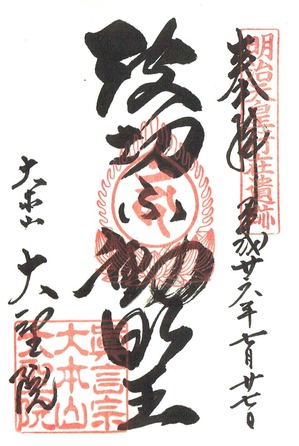 明治天皇行在遺跡
奉拝 平成廿六年七月廿七日
波切不動明王
大本山 大聖院
眞言宗
大本山
大聖院